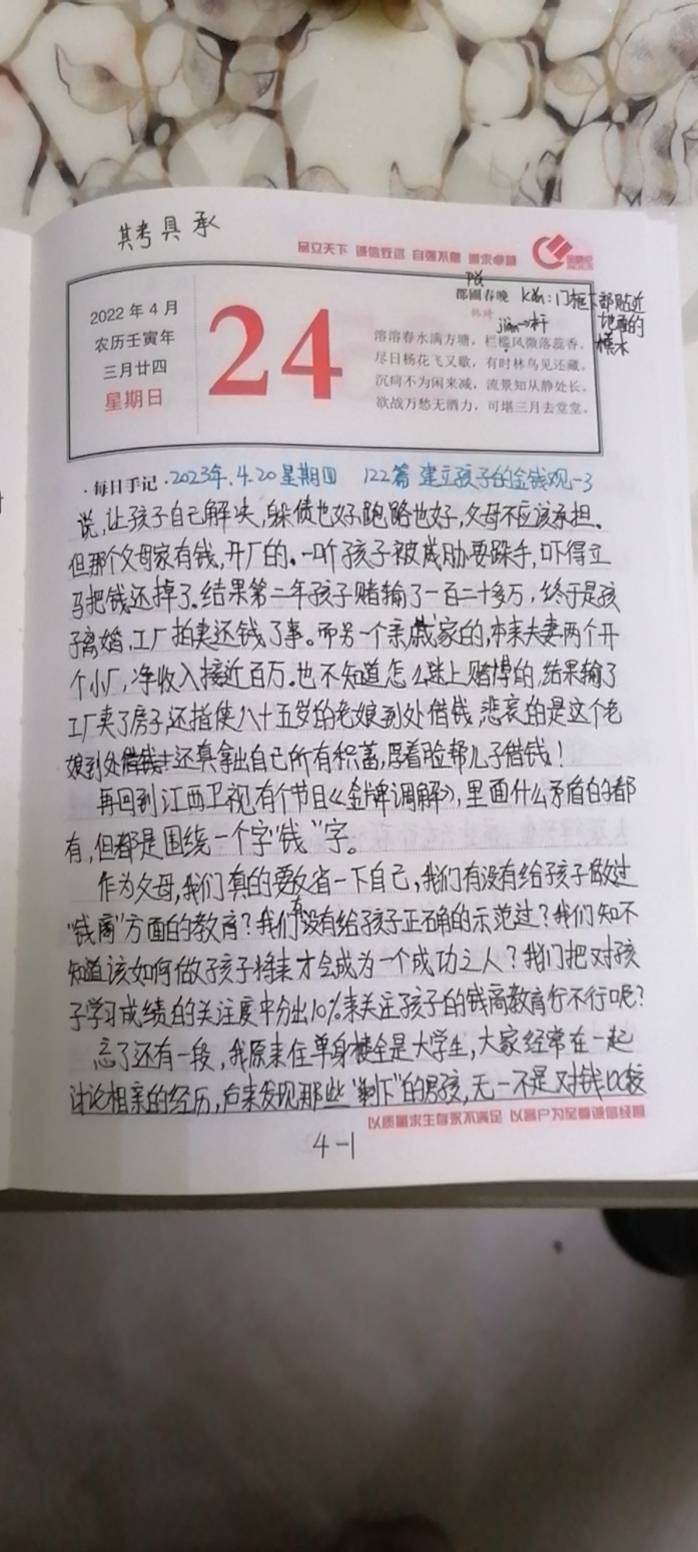 其考具承
品立天下 诚信致远 自强不息 追求卓越
2022年4月
农历壬寅年
三月廿四
星期日
24
郡圃春晚
韩琦
kǎn:门框下部贴近
地面的
横木
jiàn→杆
溶溶春水满方塘，栏槛风微落蕊香。
尽日杨花飞又歇，有时林鸟见还藏。
沉疴不为闲来减，流景知从静处长。
欲战万愁无酒力，可堪三月去堂堂。
·每日手记·2023年.4.20星期四 122篇 建立孩子的金钱观-3
说,让孩子自己解决,躲债也好,跑路也好,父母不应该承担。
但那个父母家有钱,开厂的。一听孩子被威胁要跺手,吓得立
马把钱还掉了。结果第二年孩子赌输了一百二十多万,终于是孩
子离婚,工厂拍卖还钱了事。而另一个亲戚家的,本来夫妻两个开
个小厂,净收入接近百万。也不知道怎么迷上赌博的,结果输了
工厂卖了房子,还指使八十五岁的老娘到处借钱,悲哀的是这个老
娘到处借钱还真拿出自己所有积蓄,厚着脸帮儿子借钱!
再回到江西卫视,有个节目《金牌调解》,里面什么矛盾的都
有,但都是围绕一个字“钱”字。
作为父母,我们真的要反省一下自己,我们有没有给孩子做过
“钱商”方面的教育?我们有没有给孩子正确的示范过?我们知不
知道该如何做孩子将来才会成为一个成功之人?我们把对孩
子学习成绩的关注度中分出10%来关注孩子的钱商教育行不行呢?
忘了还有一段,我原来住单身楼全是大学生,大家经常在一起
讨论相亲的经历,后来发现那些“剩下”的男孩,无一不是对钱比较
以质量求生存永不满足 以客户为至尊诚信经营
4-1